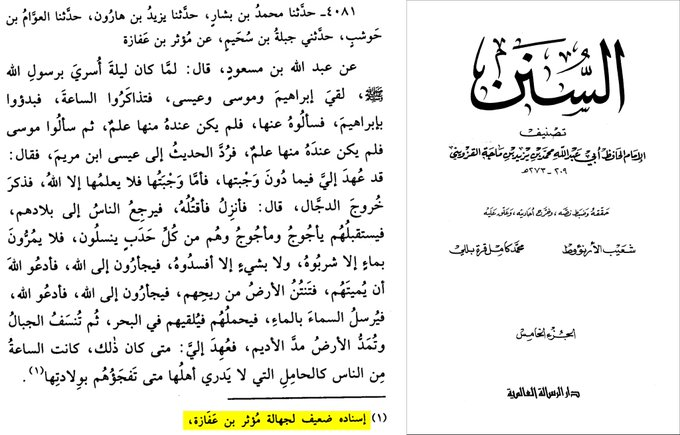 ٤٠٨١- حدَّثنا محمدُ بن بشارٍ، حدَّثنا يزيدُ بن هارُون، حدَّثنا العوَّامُ بن
حَوشبٍ، حدَّثني جبلةُ بن سُحَيمٍ، عن مُؤثر بن عَفازة
عن عبد الله بن مسعودٍ، قال: لمَّا كان ليلةَ أُسريَ برسولِ الله
ﷺ، لقيَ إبراهيمَ وموسى وعيسى، فتذاكَرُوا الساعةَ، فبدؤوا
بإبراهيمَ، فسألُوهُ عنها، فلم يكن عندهُ منها علمٌ، ثم سألُوا موسى
فلم يكن عندَهُ منها علمٌ، فرُدَّ الحديثُ إلى عيسى ابن مريمَ، فقال:
قد عُهِدَ إليَّ فيما دُونَ وَجْبتها، فأمَّا وَجْبَتُها فلا يعلمُها إلا اللهُ، فذكرَ
خُروجَ الدجَّال، قال: فأنزِلُ فأقتُلُهُ، فيرجِعُ الناسُ إلى بلادهم،
فيستقبلُهُم يأجُوجُ ومأجُوجُ وهُم من كُلِّ حَدَبٍ ينسلُون، فلا يمُرُّونَ
بماءٍ إلا شربُوهُ، ولا بشيءٍ إلا أفسدُوهُ، فيجأرُون إلى الله، فأدعُو اللهَ
أن يُميتَهُم، فتَنتُنُ الأرضُ من ريحِهم، فيجأرُونَ إلى الله، فأدعُو الله،
فيُرسلُ السماءَ بالماءِ، فيحملُهُم فيُلقيهم في البحر، ثُم تُنسَفُ الجبالُ
وتُمَدُّ الأرضُ مدَّ الأديم، فعُهِدَ إليَّ: متى كان ذٰلك، كانت الساعةُ
مِن الناس كالحاملِ التي لا يَدري أهلُها متى تَفجَؤُهُم بوِلادتِها(١).
(١) إسناده ضعيف لجهالة مُؤثر بن عَفَازة،
السُّنَن
تصنيف
الإمام الحافظ أبي عبد الله محمد بن يزيد بن ماجة القزويني
٢٠٩ - ٢٧٣هـ
حققه وضبط نصه، وخرج أحاديثه، وعلق عليه
شعيب الأرنؤوط محمد كامل قره بللي
الجزء الخامس
دار الرسالة العالمية